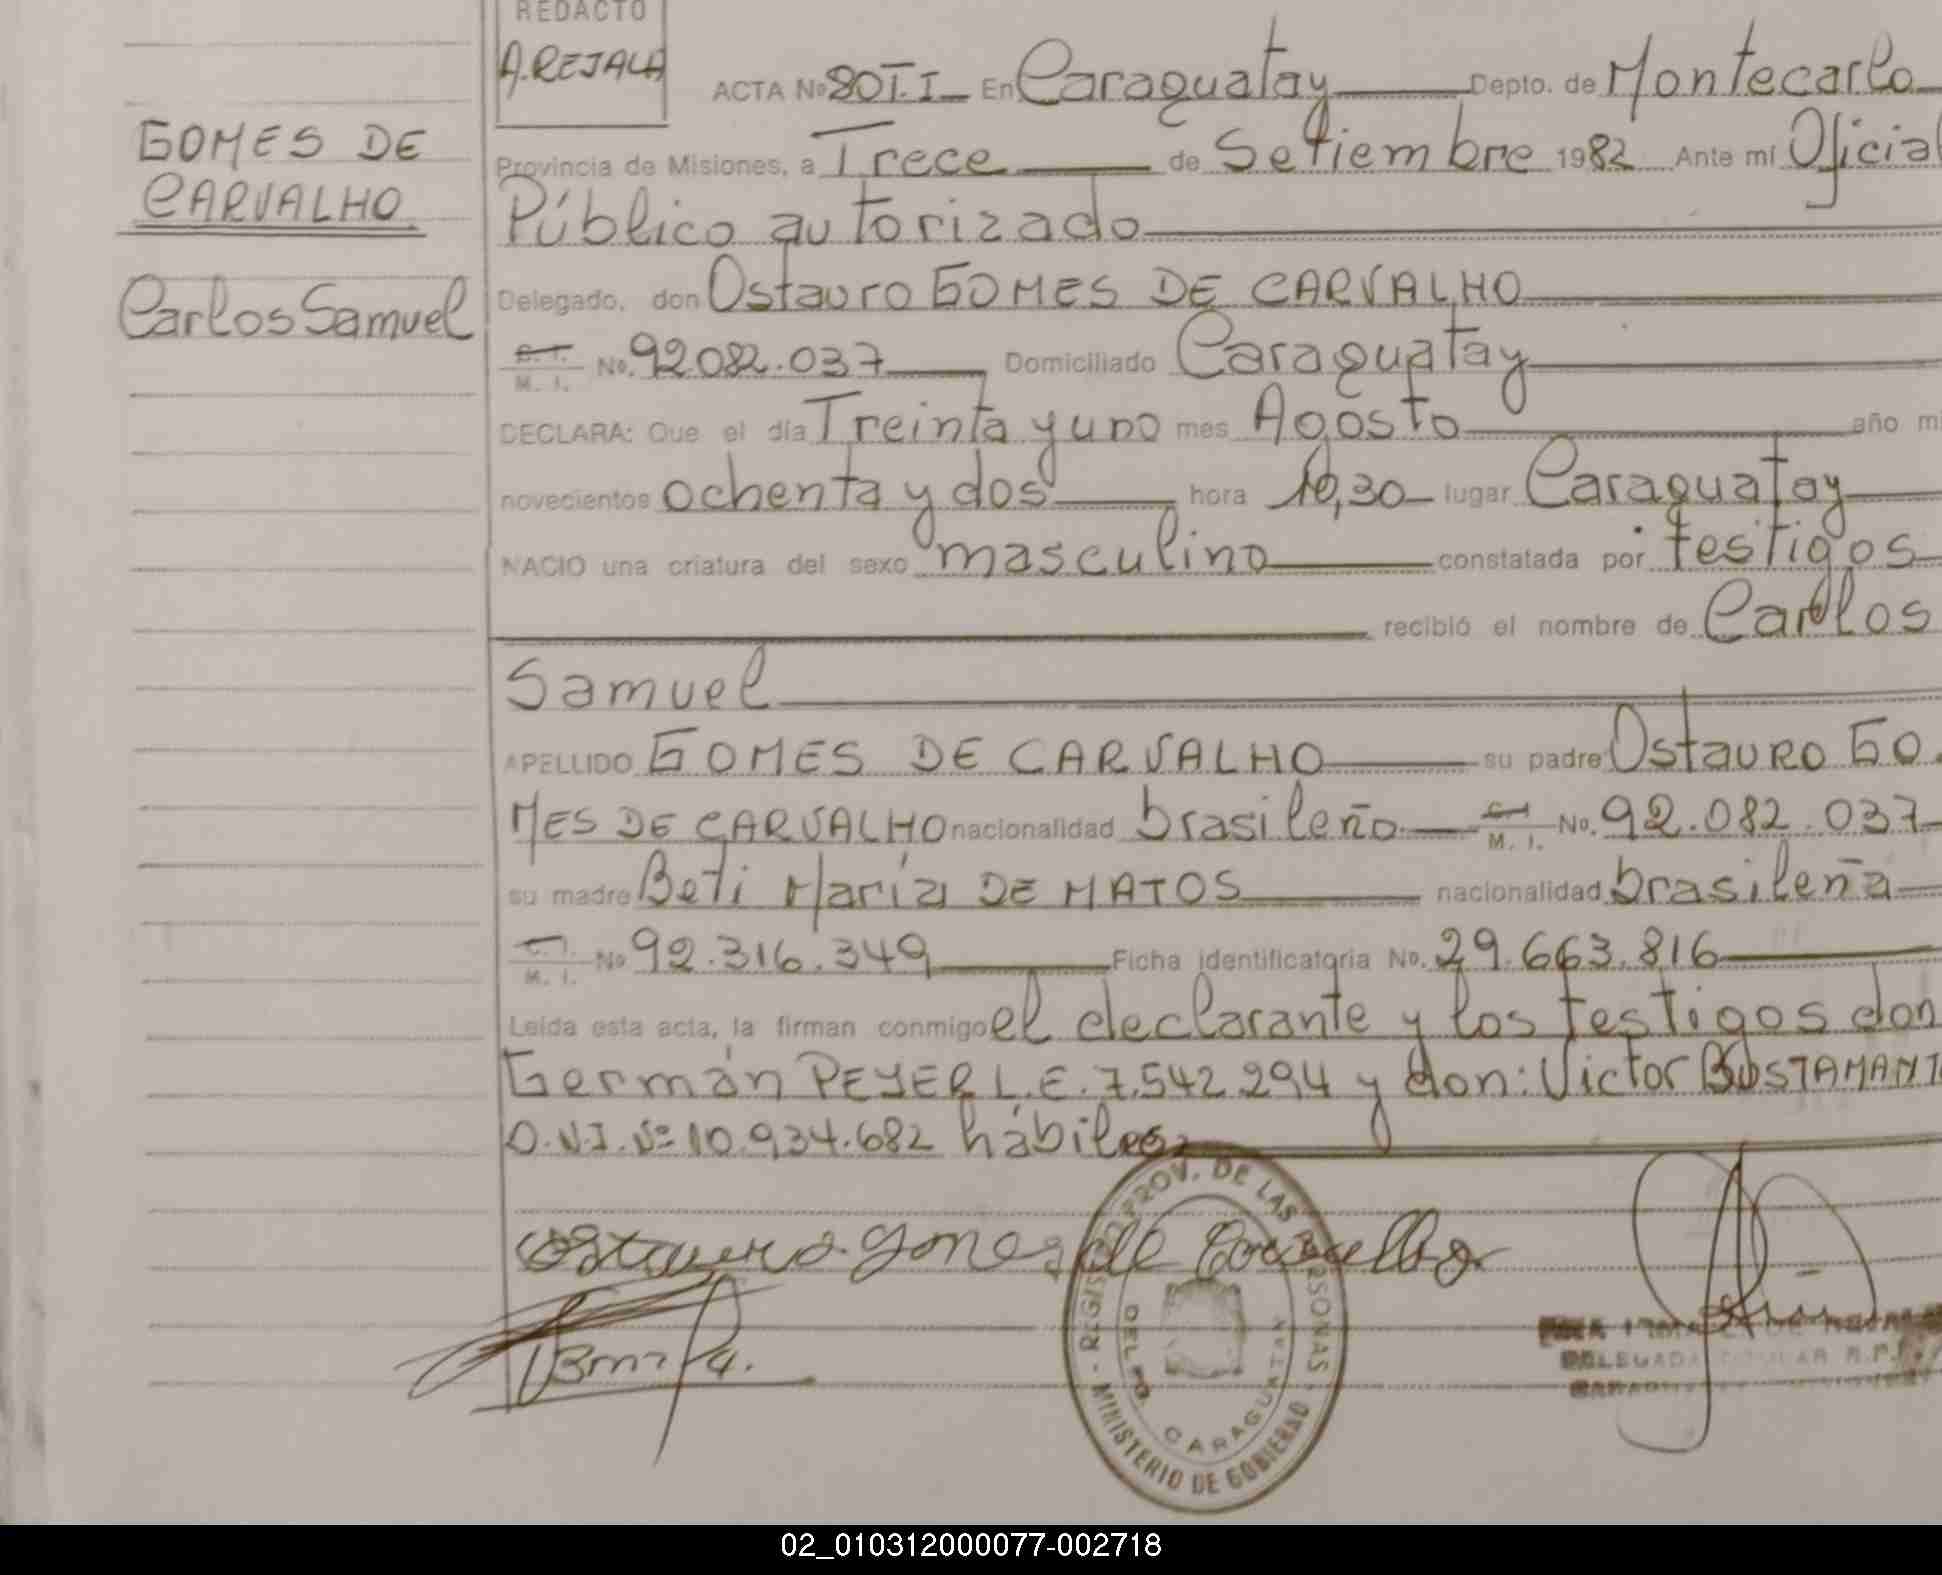 REDACTO
A. REJALA
ACTA No 80T.I En Caraguatay Depto. de Montecarlo
GOMES DE
CARVALHO
Carlos Samuel
Provincia de Misiones, a Trece de Setiembre 1982 Ante mi Oficial
Público autorizado
Delegado, don Ostauro GOMES DE CARVALHO
C. I. M. I. No. 92082.037 Domiciliado Caraguatay
DECLARA: Que el día Treinta y uno mes Agosto año mi
novecientos ochenta y dos hora 10,30 lugar Caraguatay
NACIO una criatura del sexo masculino constatada por testigos
recibió el nombre de Carlos
Samuel
APELLIDO GOMES DE CARVALHO su padre Ostauro GO
MES DE CARVALHO nacionalidad brasileño M. I. No. 92.082.037
su madre Beti María DE MATOS nacionalidad brasileña
C. I. M. I. No 92.316.349 Ficha identificatoria No. 29.663.816
Leida esta acta, la firman conmigo el declarante y los testigos don
Germán PEYER L.E. 7.542.294 y don: Victor BUSTAMANT
D.N.I. Nº 10.934.682 hábiles
Ostauro gomes de Carvalho
REGIS PROV. DE LAS PERSONAS
MINISTERIO DE GOBIERNO
CARAGUATAY
DELEGADA TITULAR R.P.
02_010312000077-002718